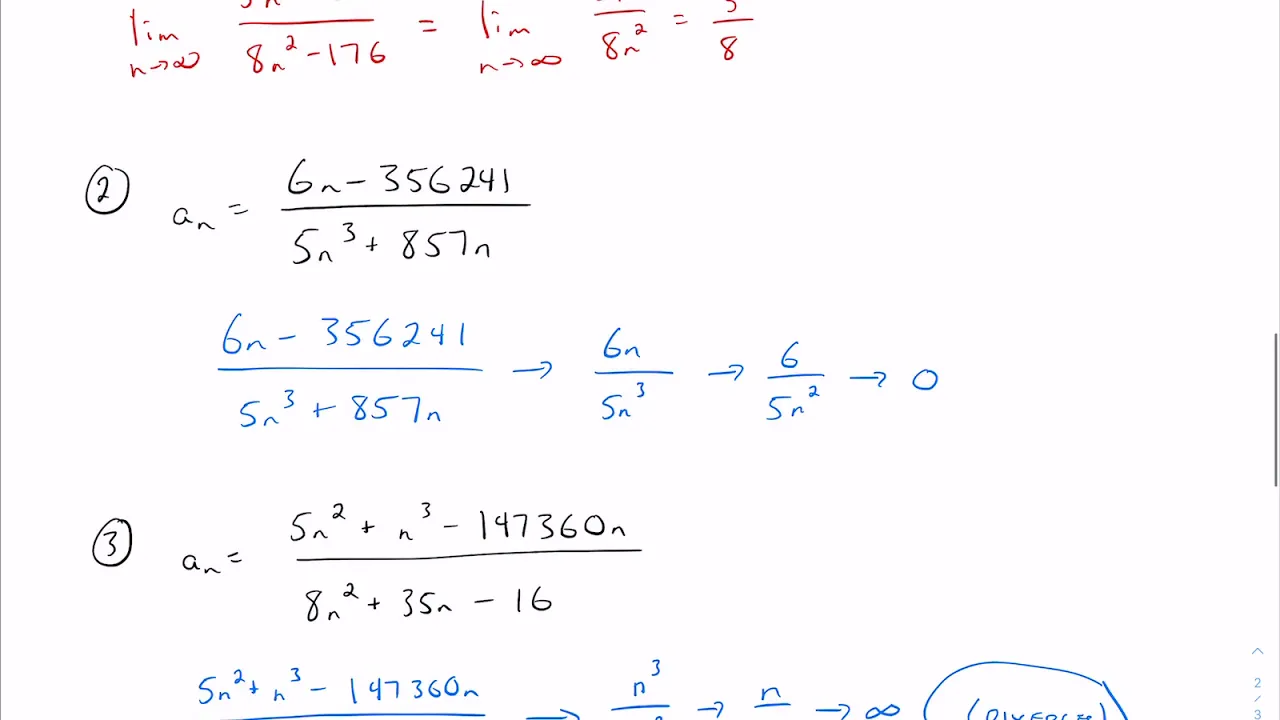 lim n→∞ 8n² - 176 = lim n→∞ 8n² = 5/8
② aₙ = (6n - 356241)/(5n³ + 857n)
(6n - 356241)/(5n³ + 857n) → 6n/5n³ → 6/5n² → 0
③ aₙ = (5n² + n³ - 147360n)/(8n² + 35n - 16)
5n² + n³ - 147360n → n³ → n → ∞
2
/
3